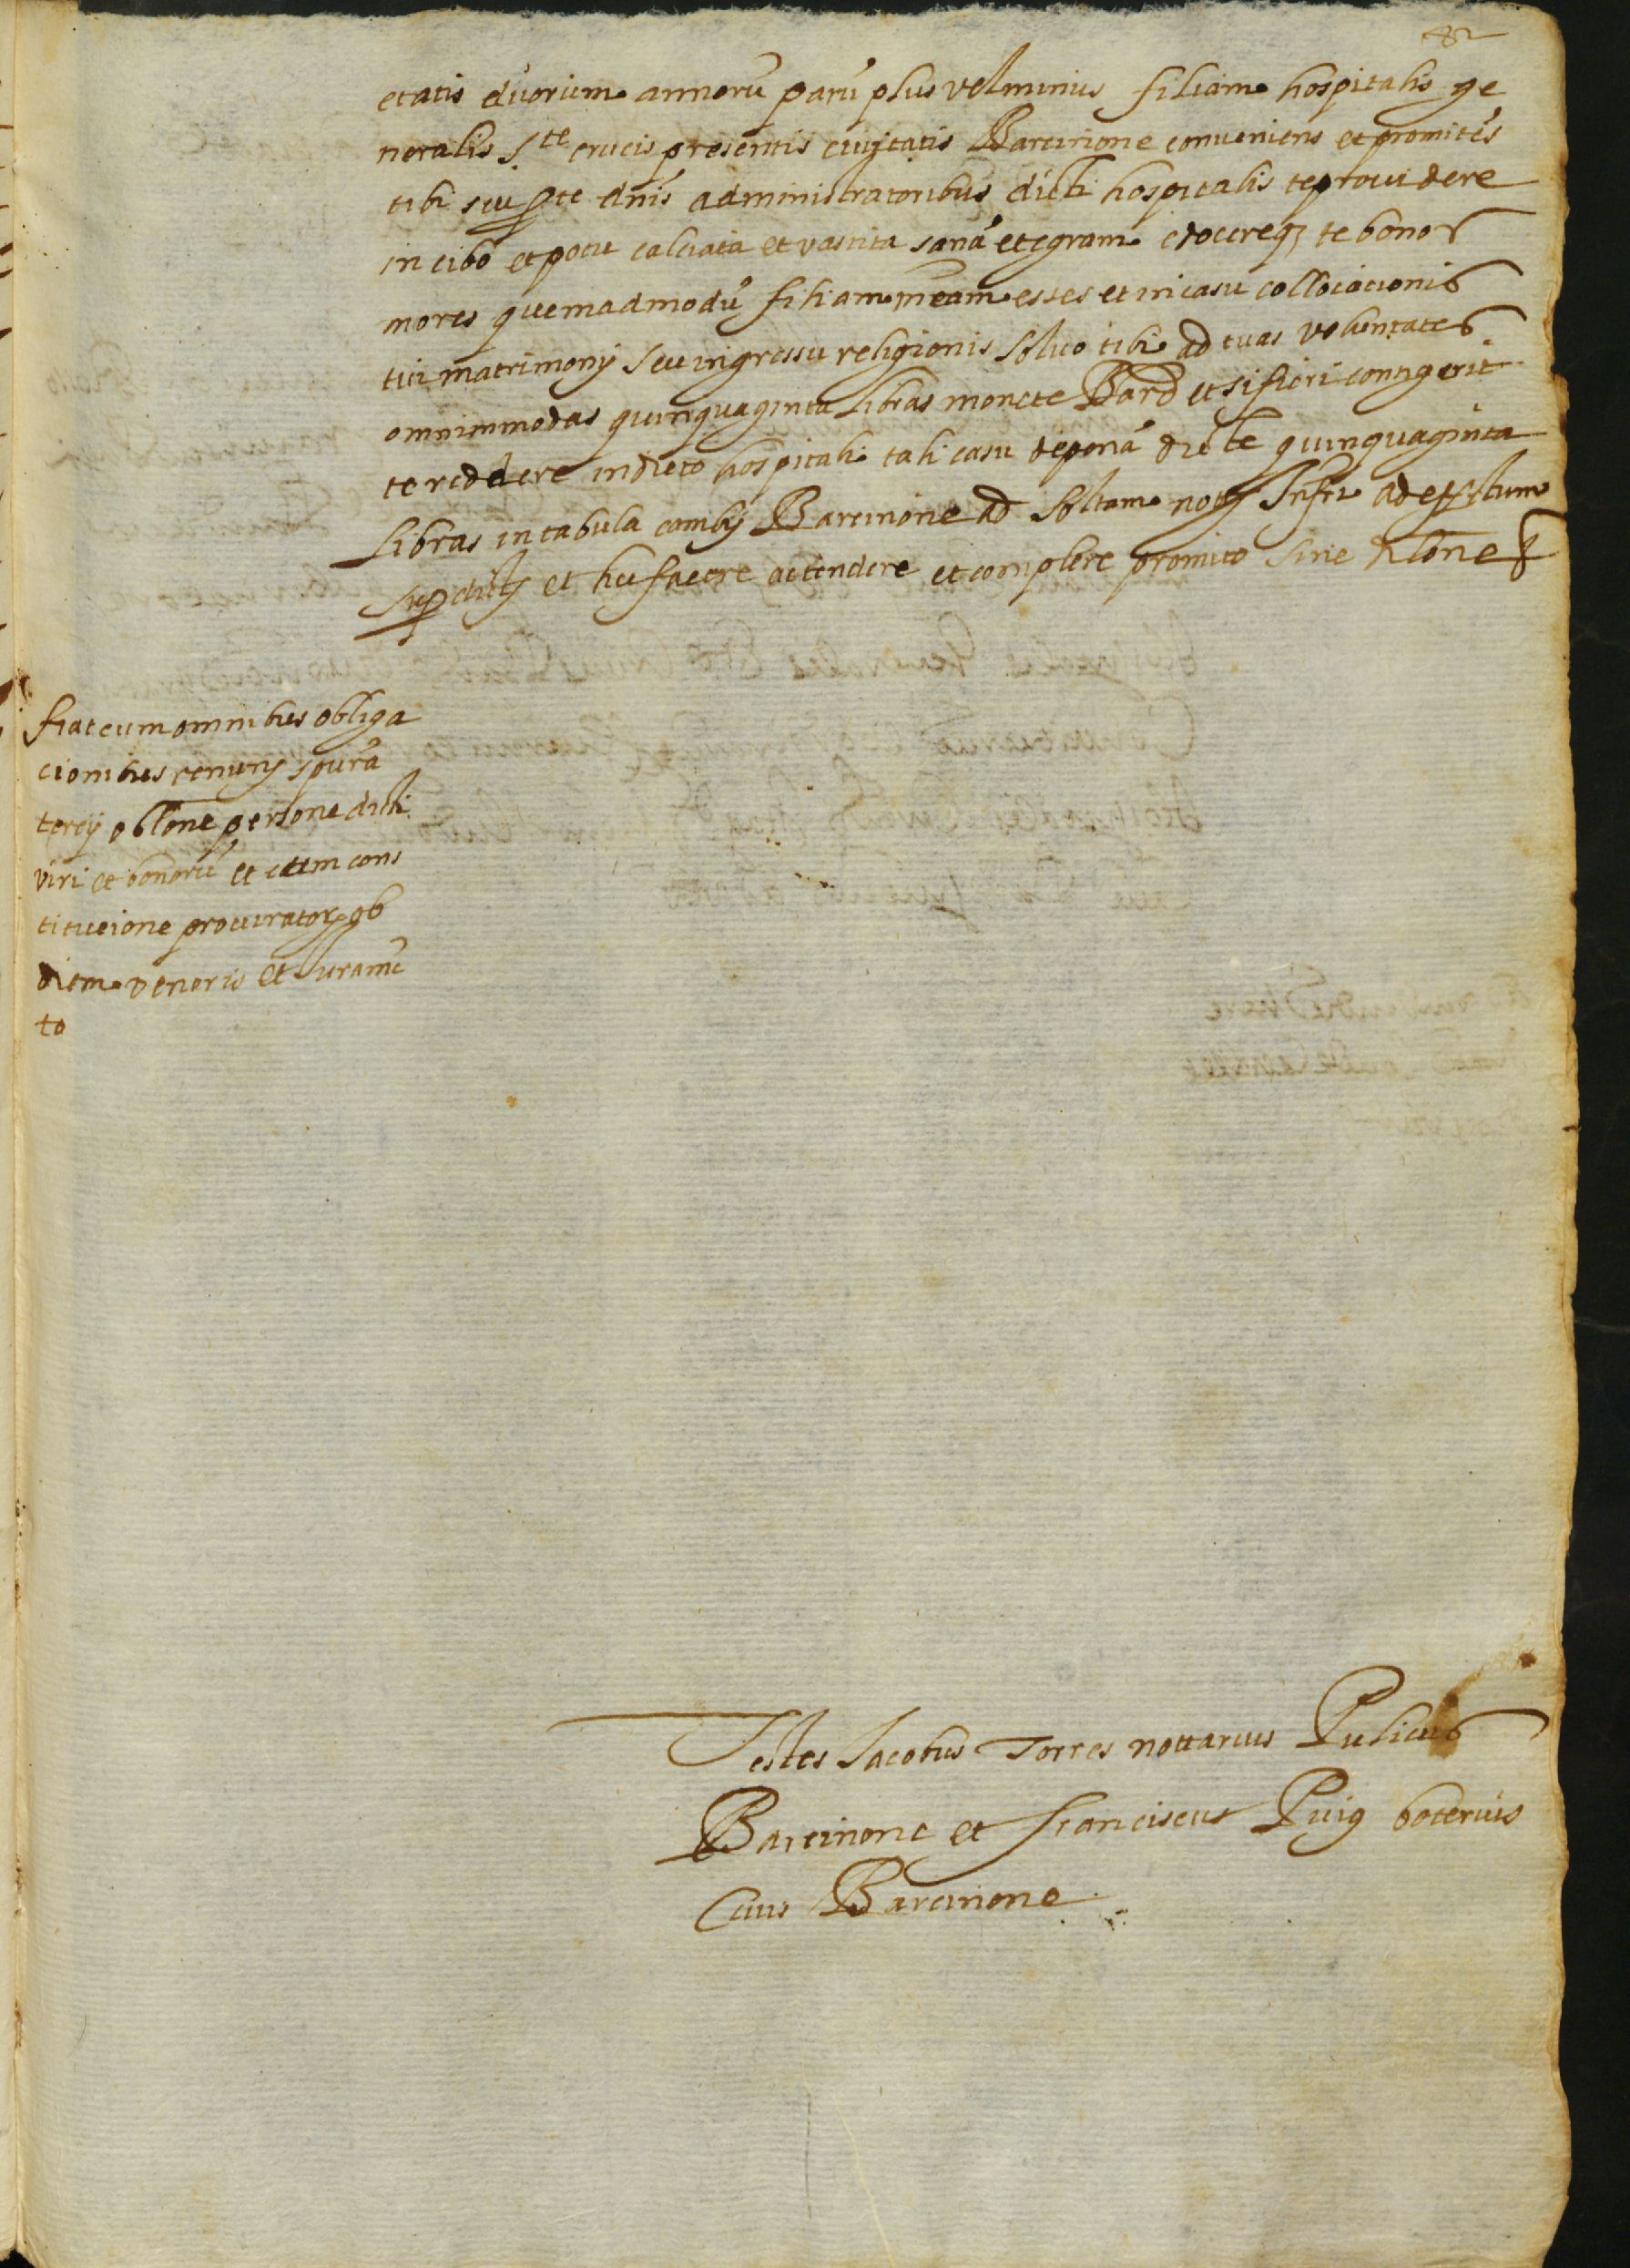 82
etatis duorum annorũ parũ plus vel minus filiam hospitalis ge
neralis Ste crucis presentis civitatis Barcinone conveniens et promitẽs
tibi seu dnis administratoribus dicti hospitalis te providere
in cibo et potu calciata et vastita sanã et egram edocereqz te bonos
mores quemadmodũ filiam meam esses et in casu collocacionis
tui matrimonÿ seu ingressu religionis solvo tibi ad tuas voluntates
omnimmodas quinquaginta libras monete Bard et si fieri contigerit
te reddere in dicto hospitali tali casu deponã dicte quinquaginta
libras in tabula cambÿ Barcinone ad soltam notÿ Infri ad effectum
supdictÿ et hec facere actendere et complere promitto sine dlone &
fiat cum omnibus obliga
cionibus renunÿ spurã
tercÿ oblone persone dicti
viri et bonorũ et etem cons
titucione procurator ob
diem veneris et Juramẽ
to
Testes Jacobus Torres nottarius Pulicus
Barcinone et Franciscus Puig boterius
Civis Barcinone